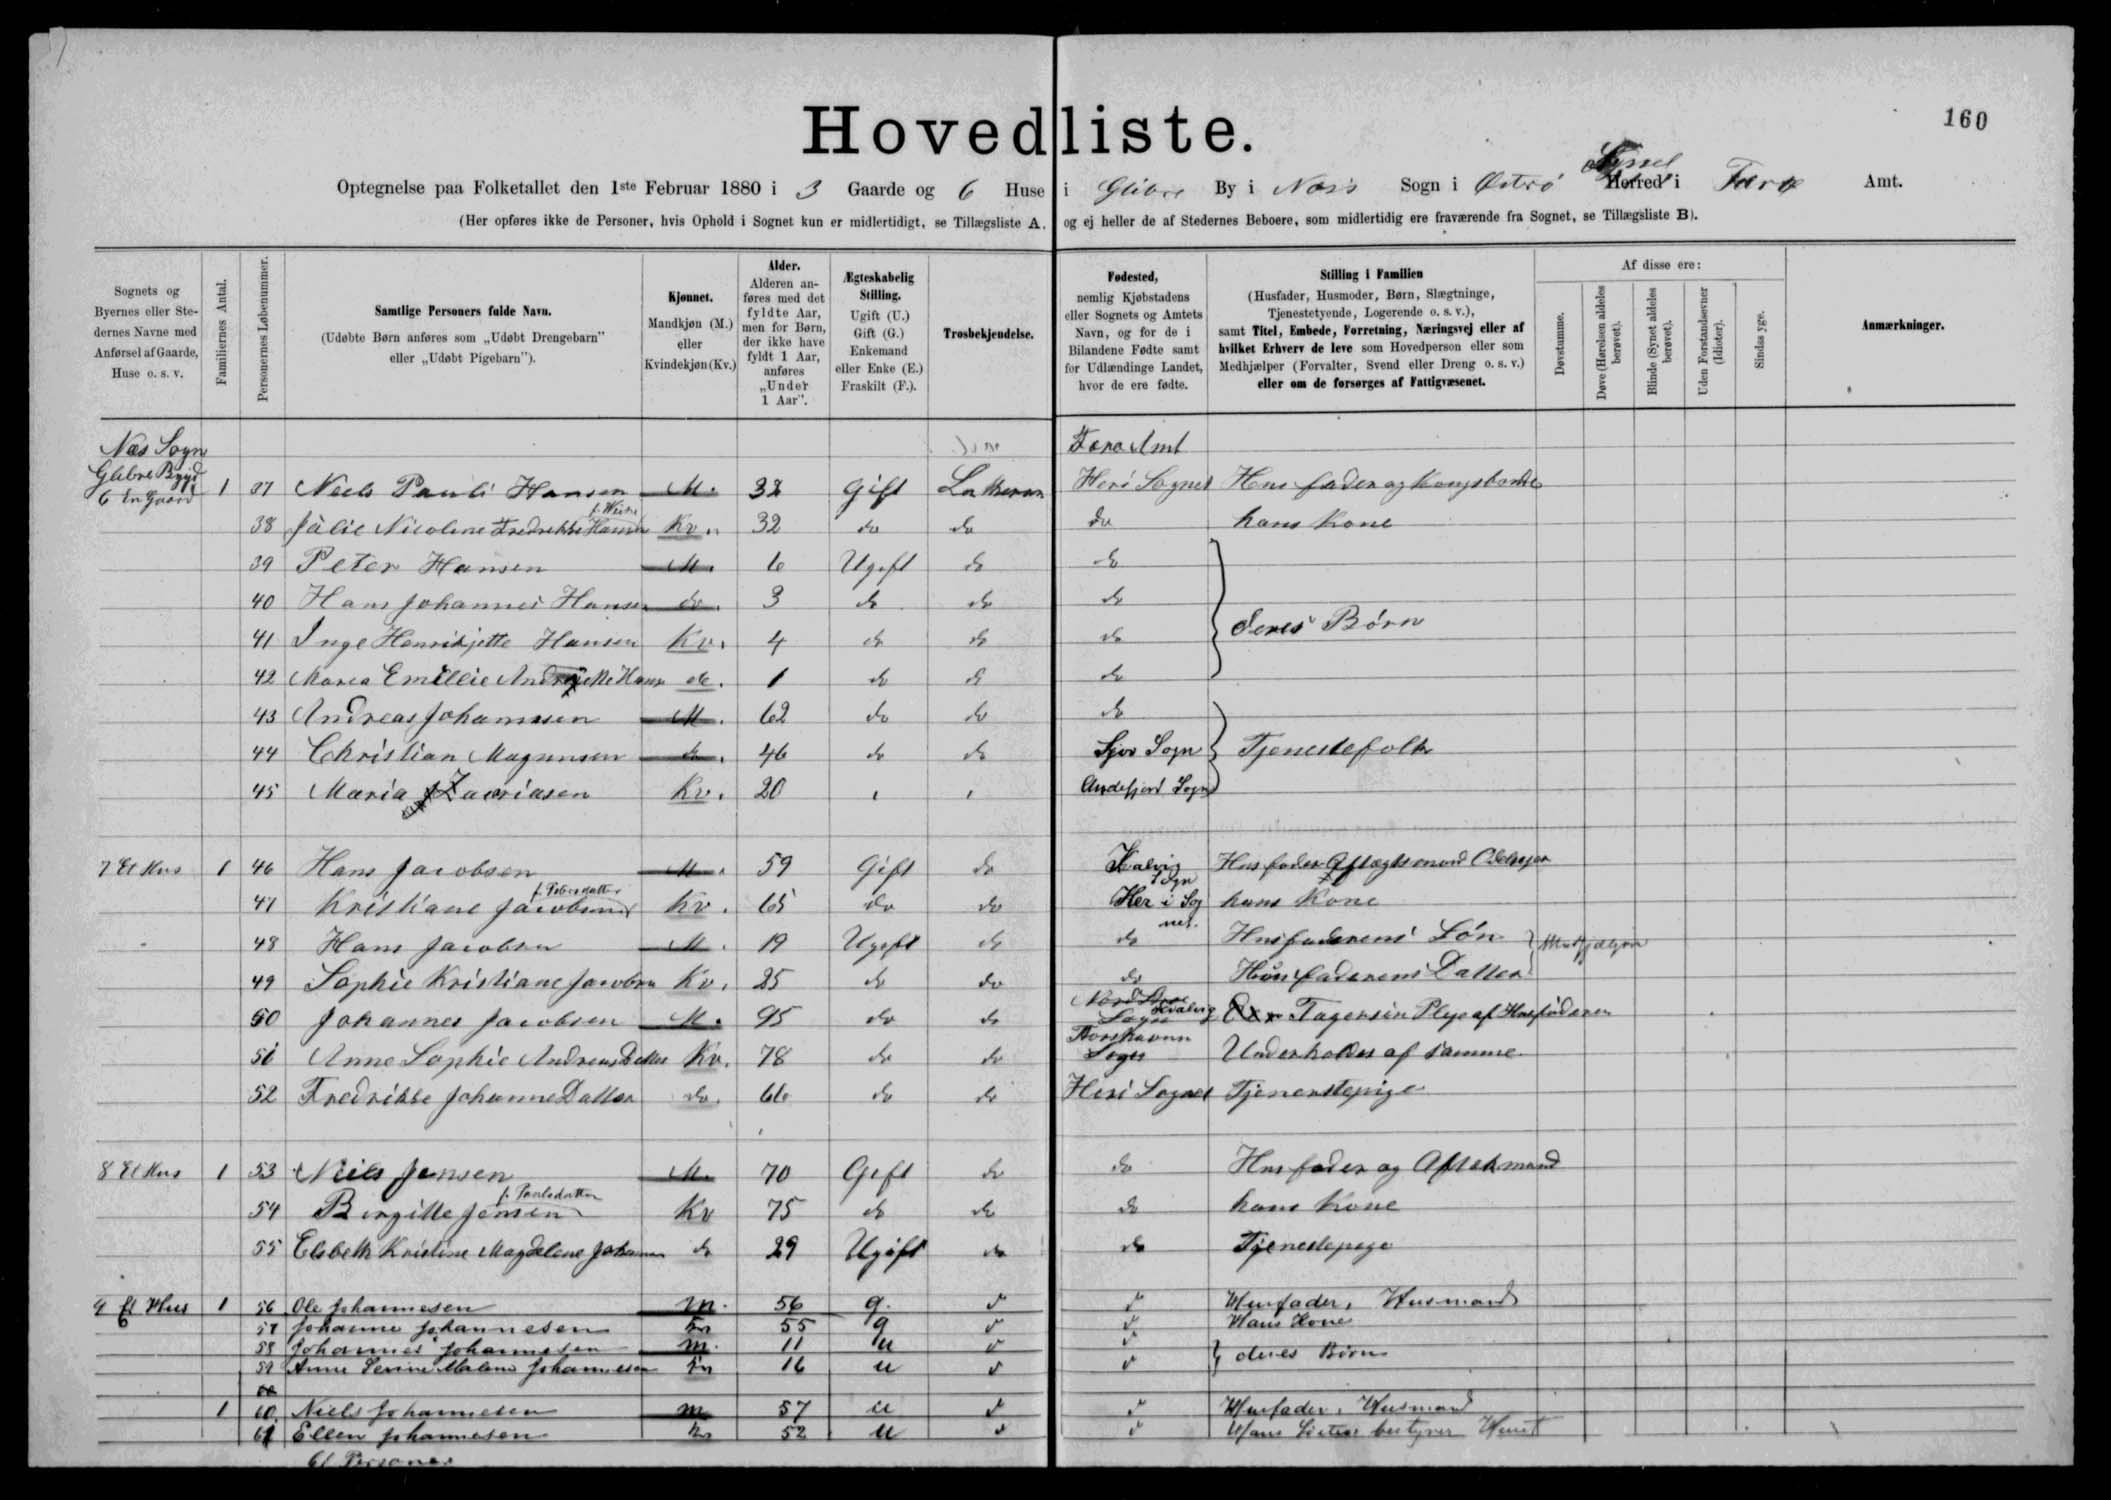 160
Hovedliste.
Optegnelse paa Folketallet den 1ste Februar 1880 i 3 Gaarde og 6 Huse i Glibre By i Næs Sogn i Østrø Syssel Herred i Færø Amt.
(Her opføres ikke de Personer, hvis Ophold i Sognet kun er midlertidigt, se Tillægsliste A. og ej heller de af Stedernes Beboere, som midlertidig ere fraværende fra Sognet, se Tillægsliste B).
Sognets og Byernes eller Stedernes Navne med Anførsel af Gaarde, Huse o. s. v.
Familiernes Antal.
Personernes Løbenummer.
Samtlige Personers fulde Navn. (Udøbte Børn anføres som „Udøbt Drengebarn" eller „Udøbt Pigebarn").
Kjønnet. Mandkjøn (M.) eller Kvindekjøn (Kv.)
Alder. Alderen anføres med det fyldte Aar, men for Børn, der ikke have fyldt 1 Aar, anføres „Under 1 Aar".
Ægteskabelig Stilling. Ugift (U.) Gift (G.) Enkemand eller Enke (E.) Fraskilt (F.).
Trosbekjendelse.
Fødested, nemlig Kjøbstadens eller Sognets og Amtets Navn, og for de i Bilandene Fødte samt for Udlændinge Landet, hvor de ere fødte.
Stilling i Familien (Husfader, Husmoder, Børn, Slægtninge, Tjenestetyende, Logerende o. s. v.), samt Titel, Embede, Forretning, Næringsvej eller af hvilket Erhverv de leve som Hovedperson eller som Medhjælper (Forvalter, Svend eller Dreng o. s. v.) eller om de forsørges af Fattigvæsenet.
Af disse ere:
Døvstumme.
Døve (Hørelsen aldeles berøvet).
Blinde (Synet aldeles berøvet).
Uden Forstandsevner (Idioter).
Sindssyge.
Anmærkninger.
Næs Sogn Færø Amt
Glibre Bygd
6 En Gaard 1 37 Niels Pauli Hansen M. 32 Gift Lutheran Heri Sognet Husfader og Kongsbonde
38 Julie Nicoline Fredrikke Hansen Kv. 32 do do do hans Kone
39 Peter Hansen M. 6 Ugift do do
40 Hans Johannes Hansen do. 3 do do do
41 Inge Henrikjette Hansen Kv. 4 do do do deres Børn
42 Maria Emillie do. 1 do do do
43 Andreas Johannesen M. 62 do do do
44 Christian Magnussen do. 46 do do Sjov Sogn Tjenestefolk
45 Maria Zacriasen Kv. 20 Andefjord Sogn
7 Et Hus 1 46 Hans Jacobsen M. 59 Gift do Kvalvig Sogn Husfader Aftægtsmand
47 Kristiane Jacobsen f. Petersdatter Kv. 65 do do Her i Sognet. hans Kone
48 Hans Jacobsen M. 19 Ugift do do Husfaderens Søn
49 Sophie Kristiane Jacobsen Kv. 25 do do do Husfaderens Datter
50 Johannes Jacobsen M. 95 do do Kvalvig Sogn Tagensin Pleje af Husfaderen
51 Anne Sophie Andreas Datter Kv. 78 do do Thorshavn Sogn Underholdes af samme
52 Fredrikke Johanne Datter do. 66 do do Heri Sognet Tjenerstepige
8 Et Hus 1 53 Niels Jensen M. 70 Gift do do Husfader og Aftekmand
54 Birgitte Jensen f. Poulsdatter Kv 75 do do do hans Kone
55 Elsbeth Kristine Magdalene do 29 Ugift do do Tjenestepige
9 Et Hus 1 56 Ole Johannesen m. 56 g. Husfader, Husmand
57 Johanne Johannesen 55 g Hans Kone
58 Johannes Johannesen m. 11 u
59 Anne Johannesen 16 u deres Børn
1 60 Niels Johannesen m 57 u Husfader, Husmand
61 Ellen Johannesen 52 u Hans Søster bestyrer Huset
61 Personer